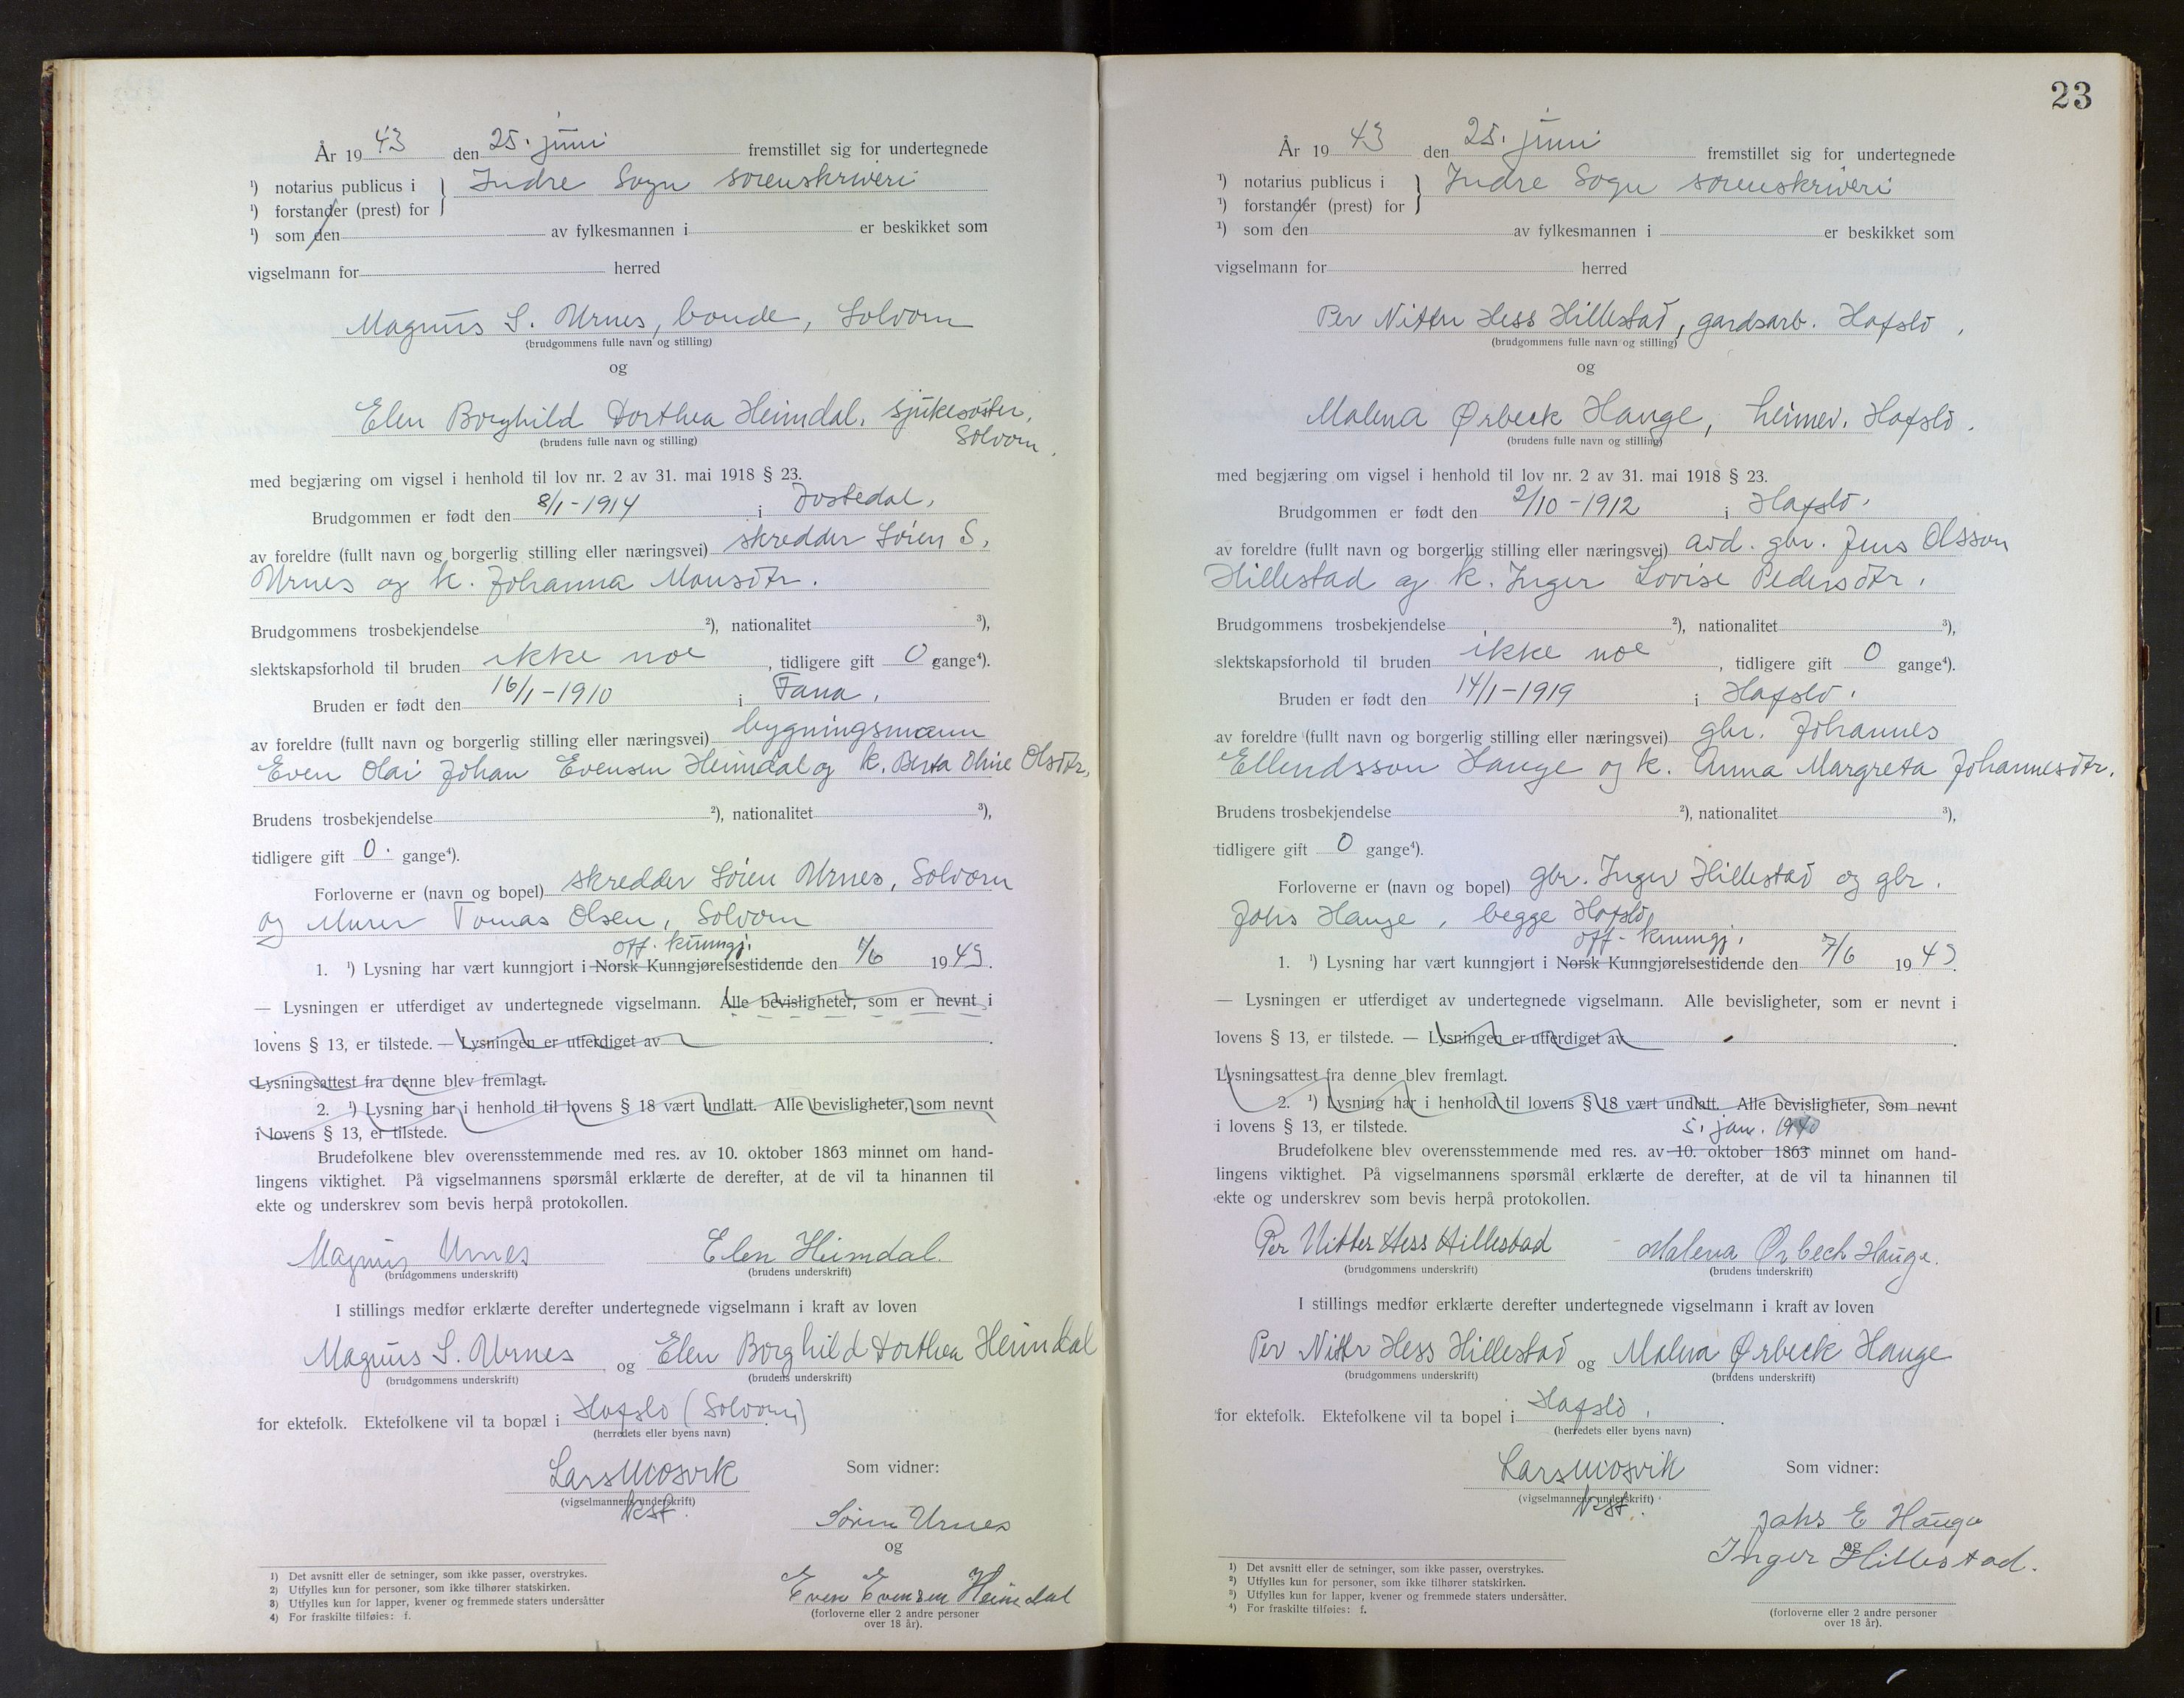 År 1943 den 25. juni fremstillet sig for undertegnede
¹) notarius publicus i } Indre Sogn sorenskriveri
¹) forstander (prest) for
¹) som den av fylkesmannen i er beskikket som
vigselmann for herred
Magnus S. Urnes, bonde, Solvorn
(brudgommens fulle navn og stilling)
og
Elen Borghild Dorthea Heimdal, sjukesøster,
Solvorn.
(brudens fulle navn og stilling)
med begjæring om vigsel i henhold til lov nr. 2 av 31. mai 1918 § 23.
Brudgommen er født den 8/1-1914 i Jostedal,
av foreldre (fullt navn og borgerlig stilling eller næringsvei) skredder Søren S.
Urnes og k. Johanna Monsdtr.
Brudgommens trosbekjendelse ²), nationalitet ³),
slektskapsforhold til bruden ikke noe, tidligere gift 0 gange⁴).
Bruden er født den 16/1-1910 i Fana,
av foreldre (fullt navn og borgerlig stilling eller næringsvei) bygningsmann
Even Olai Johan Evensen Heimdal og k. Berta Oline Olsdtr,
Brudens trosbekjendelse ²), nationalitet ³),
tidligere gift 0. gange⁴).
Forloverne er (navn og bopel) skredder Søren Urnes, Solvorn
og Murer Tomas Olsen, Solvorn
off. kunngj.
1. ¹) Lysning har vært kunngjort i Norsk Kunngjørelsestidende den 1/6 1943.
— Lysningen er utferdiget av undertegnede vigselmann. Alle bevisligheter, som er nevnt i
lovens § 13, er tilstede. — Lysningen er utferdiget av .
Lysningsattest fra denne blev fremlagt.
2. ¹) Lysning har i henhold til lovens § 18 vært undlatt. Alle bevisligheter, som nevnt
i lovens § 13, er tilstede.
Brudefolkene blev overensstemmende med res. av 10. oktober 1863 minnet om hand-
lingens viktighet. På vigselmannens spørsmål erklærte de derefter, at de vil ta hinannen til
ekte og underskrev som bevis herpå protokollen.
Magnus Urnes Elen Heimdal.
(brudgommens underskrift) (brudens underskrift)
I stillings medfør erklærte derefter undertegnede vigselmann i kraft av loven
Magnus S. Urnes og Elen Borghild Dorthea Heimdal
(brudgommens underskrift) (brudens underskrift)
for ektefolk. Ektefolkene vil ta bopæl i Hafslo (Solvorn)
(herredets eller byens navn)
Lars Mosvik Som vidner:
(vigselmannens underskrift)
kst.
Søren Urnes
og
Even Evensen Heimdal
(forloverne eller 2 andre personer
over 18 år).
1) Det avsnitt eller de setninger, som ikke passer, overstrykes.
2) Utfylles kun for personer, som ikke tilhører statskirken.
3) Utfylles kun for lapper, kvener og fremmede staters undersåtter
4) For fraskilte tilføies: f.
23
År 1943 den 25. juni fremstillet sig for undertegnede
¹) notarius publicus i } Indre Sogn sorenskriveri
¹) forstander (prest) for
¹) som den av fylkesmannen i er beskikket som
vigselmann for herred
Per Nitter Hess Hillestad, gardsarb. Hafslo,
(brudgommens fulle navn og stilling)
og
Malena Ørbeck Hauge, heimev. Hafslo.
(brudens fulle navn og stilling)
med begjæring om vigsel i henhold til lov nr. 2 av 31. mai 1918 § 23.
Brudgommen er født den 2/10-1912 i Hafslo.
av foreldre (fullt navn og borgerlig stilling eller næringsvei) avd. gbr. Jens Olsson
Hillestad og k. Inger Lovise Pedersdtr.
Brudgommens trosbekjendelse ²), nationalitet ³),
slektskapsforhold til bruden ikke noe, tidligere gift 0 gange⁴).
Bruden er født den 14/1-1919 i Hafslo.
av foreldre (fullt navn og borgerlig stilling eller næringsvei) gbr. Johannes
Ellendsson Hauge og k. Anna Margreta Johannesdtr.
Brudens trosbekjendelse ²), nationalitet ³),
tidligere gift 0 gange⁴).
Forloverne er (navn og bopel) gbr. Inger Hillestad og gbr.
Johs Hauge, begge Hafslo,
off. kunngj.
1. ¹) Lysning har vært kunngjort i Norsk Kunngjørelsestidende den 7/6 1943.
— Lysningen er utferdiget av undertegnede vigselmann. Alle bevisligheter, som er nevnt i
lovens § 13, er tilstede. — Lysningen er utferdiget av .
Lysningsattest fra denne blev fremlagt.
2. ¹) Lysning har i henhold til lovens § 18 vært undlatt. Alle bevisligheter, som nevnt
i lovens § 13, er tilstede. 5. jan. 1940
Brudefolkene blev overensstemmende med res. av 10. oktober 1863 minnet om hand-
lingens viktighet. På vigselmannens spørsmål erklærte de derefter, at de vil ta hinannen til
ekte og underskrev som bevis herpå protokollen.
Per Nitter Hess Hillestad Malena Ørbech Hauge.
(brudgommens underskrift) (brudens underskrift)
I stillings medfør erklærte derefter undertegnede vigselmann i kraft av loven
Per Nitter Hess Hillestad og Malena Ørbeck Hauge
(brudgommens underskrift) (brudens underskrift)
for ektefolk. Ektefolkene vil ta bopel i Hafslo.
(herredets eller byens navn)
Lars Mosvik Som vidner:
(vigselmannens underskrift)
kst.
Johs E Hauge
og
Inger Hillestad.
(forloverne eller 2 andre personer
over 18 år).
1) Det avsnitt eller de setninger, som ikke passer, overstrykes.
2) Utfylles kun for personer, som ikke tilhører statskirken.
3) Utfylles kun for lapper, kvener og fremmede staters undersåtter.
4) For fraskilte tilføies: f.